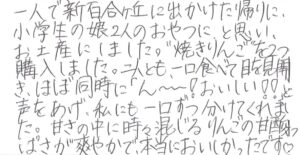 一人で新百合ヶ丘に出かけた帰りに、
小学生の娘2人のおやつに、と思い、
お土産にしました。"焼きりんご"を2つ
購入しました。二人とも、一口食べて目を見開
き、ほぼ同時に「ん〜〜!!おいしい!!」と
声をあげ、私にも一口ずつ分けてくれまし
た。甘さの中に時々混じるりんごの甘酸っ
ぱさが爽やかで、本当においしかったです♡